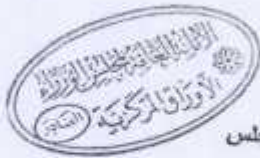 الأمانة العامة لمجلس الوزراء
الأوراق المركزية
الصادر